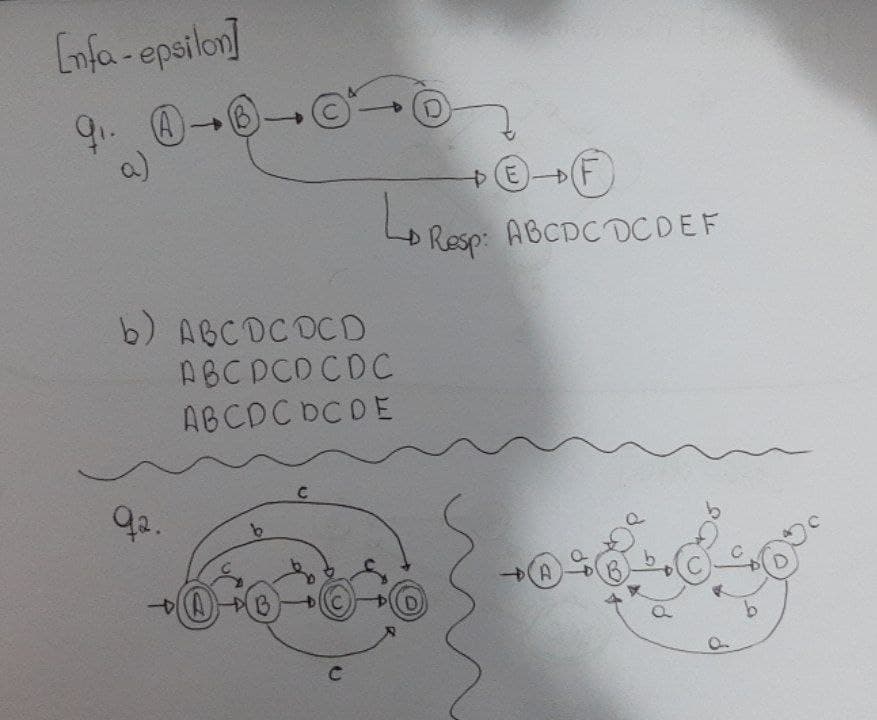 [nfa-epsilon]
q1. A B C D
a) E F
Resp: ABCDCDCDEF
b) ABCDCDCD
ABCDCDCDC
ABCDCDCDE
q2.
c
b
c b c
A B C D
c
a b c
A a B b C c D
a b
a